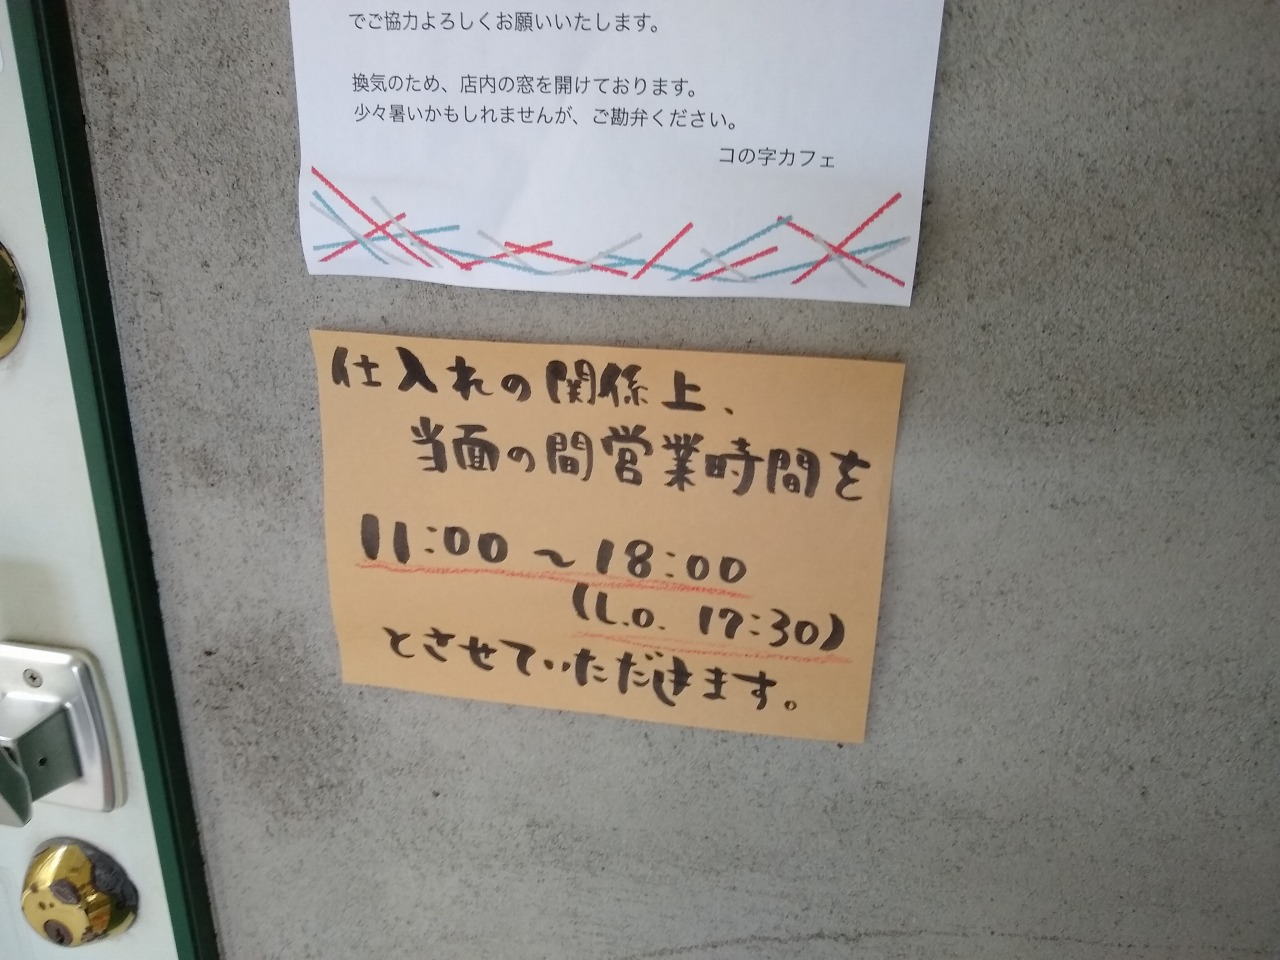 でご協力よろしくお願いいたします。
換気のため、店内の窓を開けております。
少々暑いかもしれませんが、ご勘弁ください。
コの字カフェ
仕入れの関係上、
当面の間営業時間を
11:00～18:00
(L.O. 17:30)
とさせていただきます。